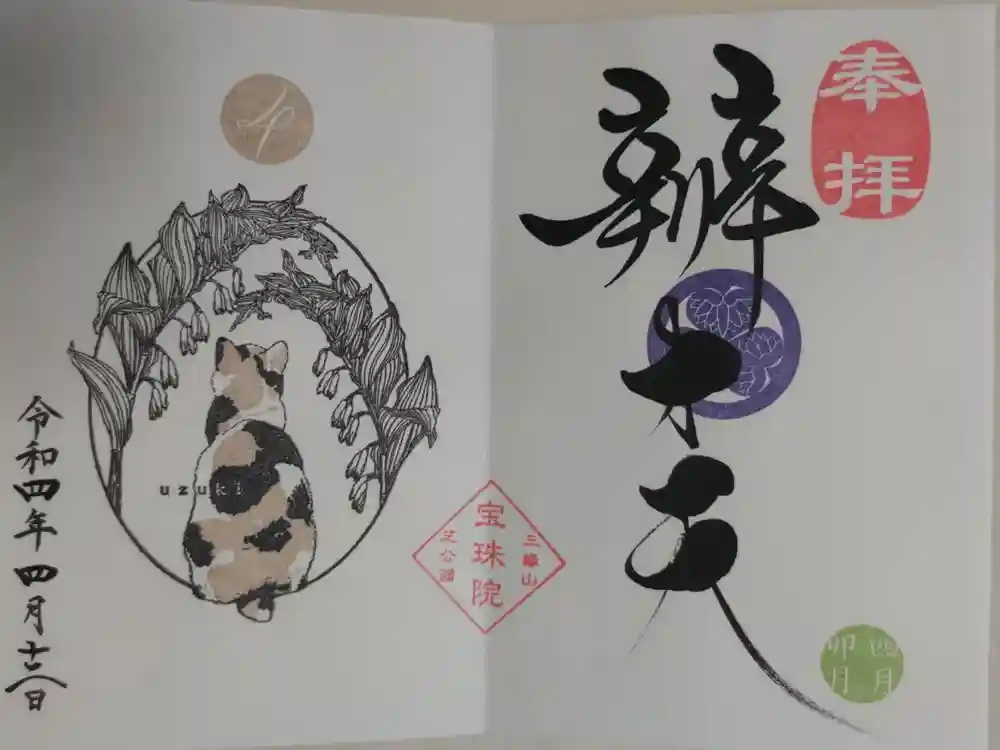 奉拝
辨才天
四月
卯月
三縁山
宝珠院
芝公園
4
uzuki
令和四年四月十六日